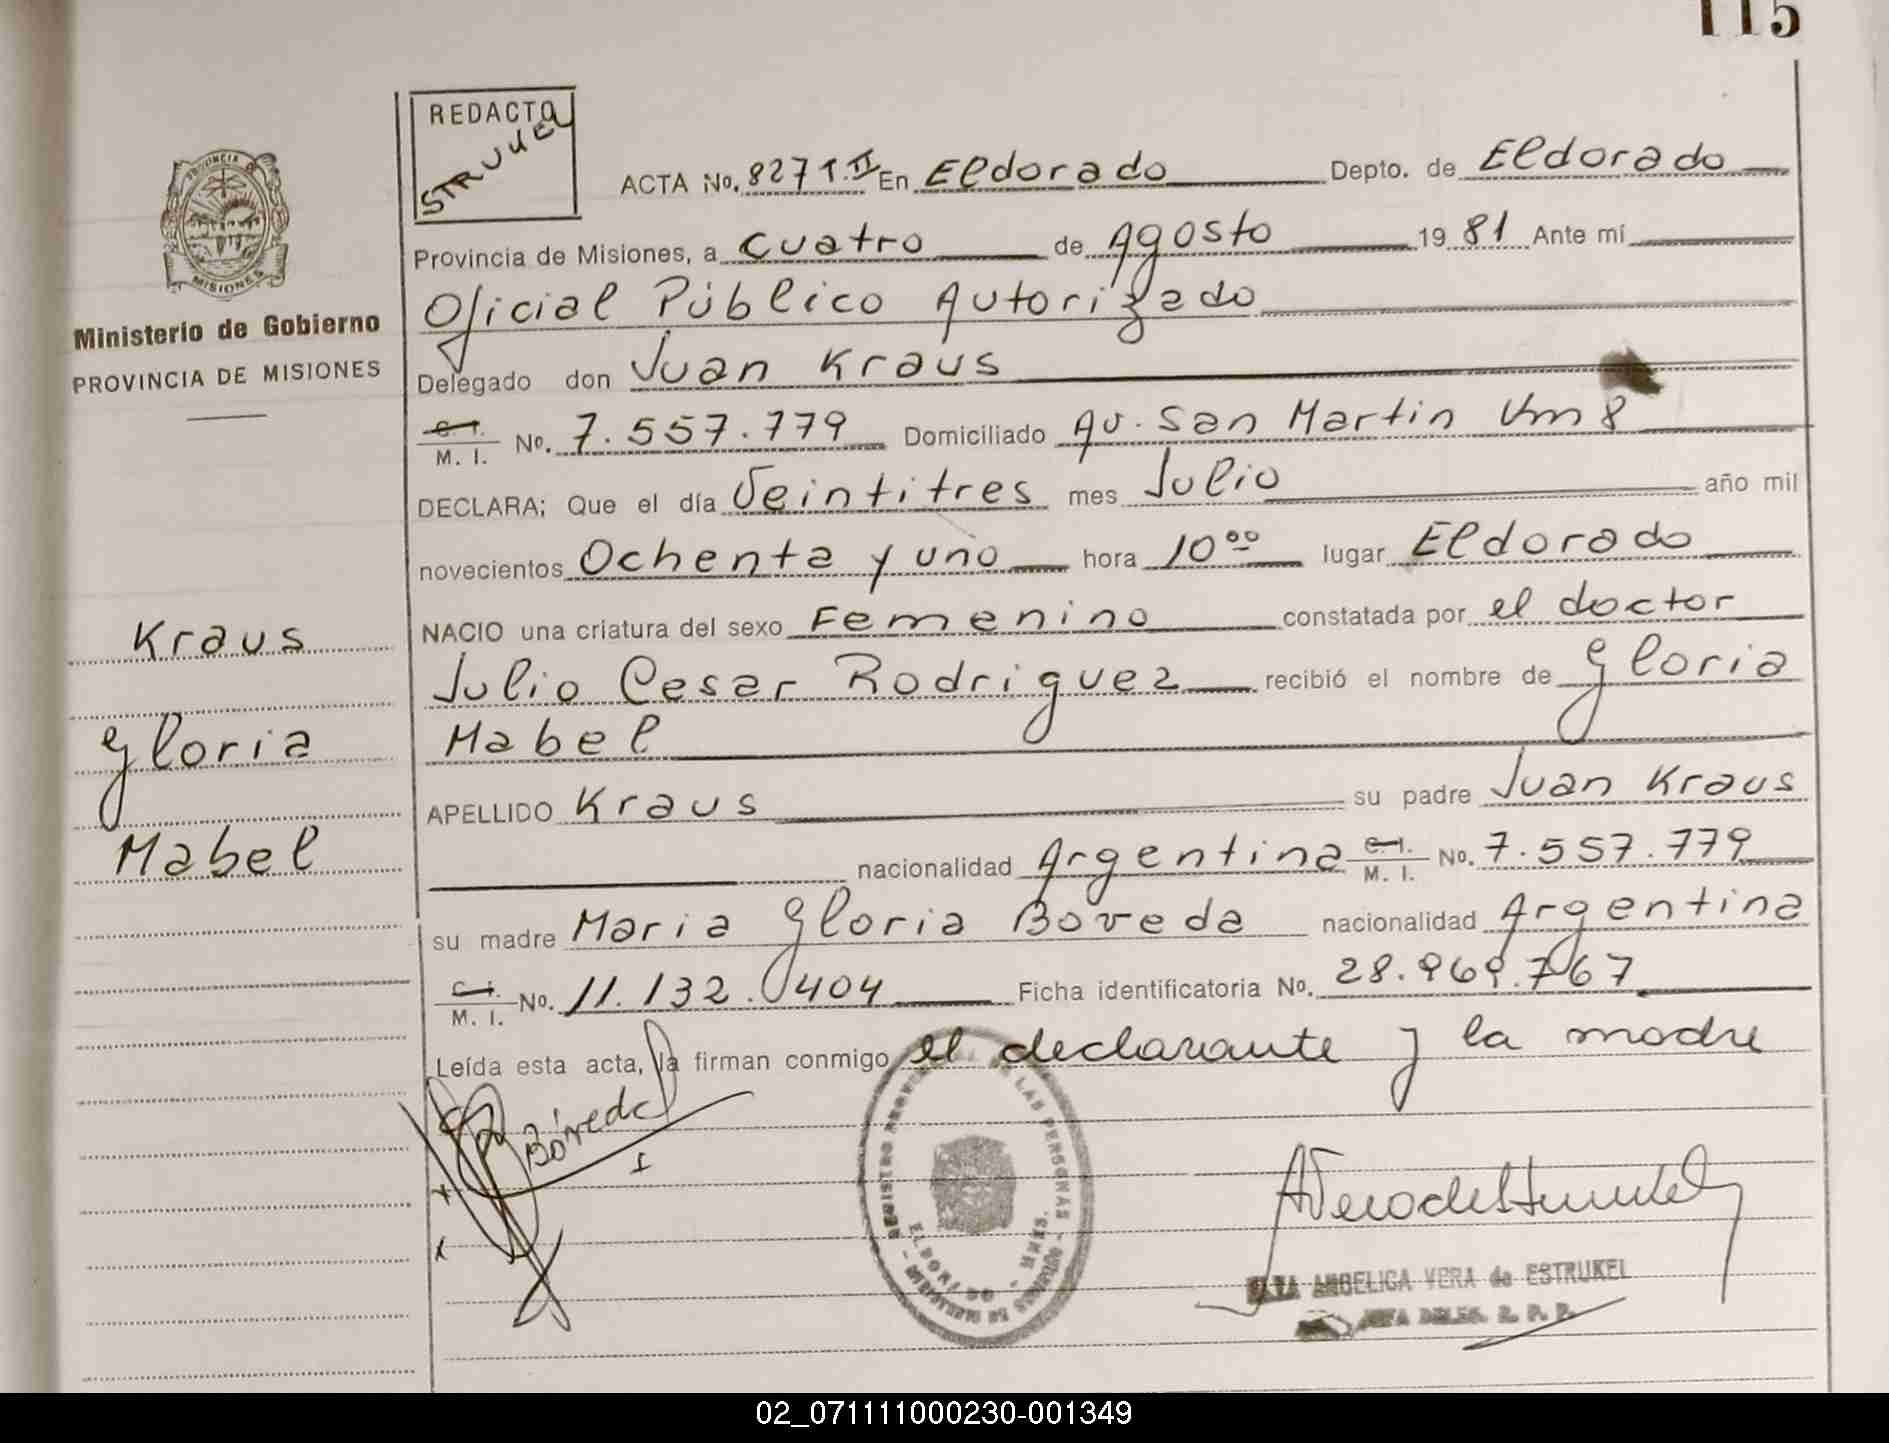 115
REDACTO
STRUKEL
PROVINCIA DE
MISIONES
Ministerio de Gobierno
PROVINCIA DE MISIONES
Kraus
Gloria
Mabel
ACTA No. 827 T.II En Eldorado Depto. de Eldorado
Provincia de Misiones, a cuatro de Agosto 1981 Ante mí
Oficial Público Autorizado
Delegado don Juan Kraus
C. I. M. I. No. 7.557.779 Domiciliado Av. San Martin Km 8
DECLARA; Que el día Veintitres mes Julio año mil
novecientos Ochenta y uno hora 10⁰⁰ lugar Eldorado
NACIO una criatura del sexo Femenino constatada por el doctor
Julio Cesar Rodriguez recibió el nombre de Gloria
Mabel
APELLIDO Kraus su padre Juan Kraus
nacionalidad Argentina C. I. M. I. No. 7.557.779
su madre Maria Gloria Boveda nacionalidad Argentina
C. I. M. I. No. 11.132.404 Ficha identificatoria No. 28.969.767
Leída esta acta, la firman conmigo el declarante y la madre
Bóveda
AVera de Strukel
ANGELICA VERA de ESTRUKEL
JEFA DELEG. R. P. P.
DE LAS PERSONAS
ELDORADO - MNES.
02_071111000230-001349